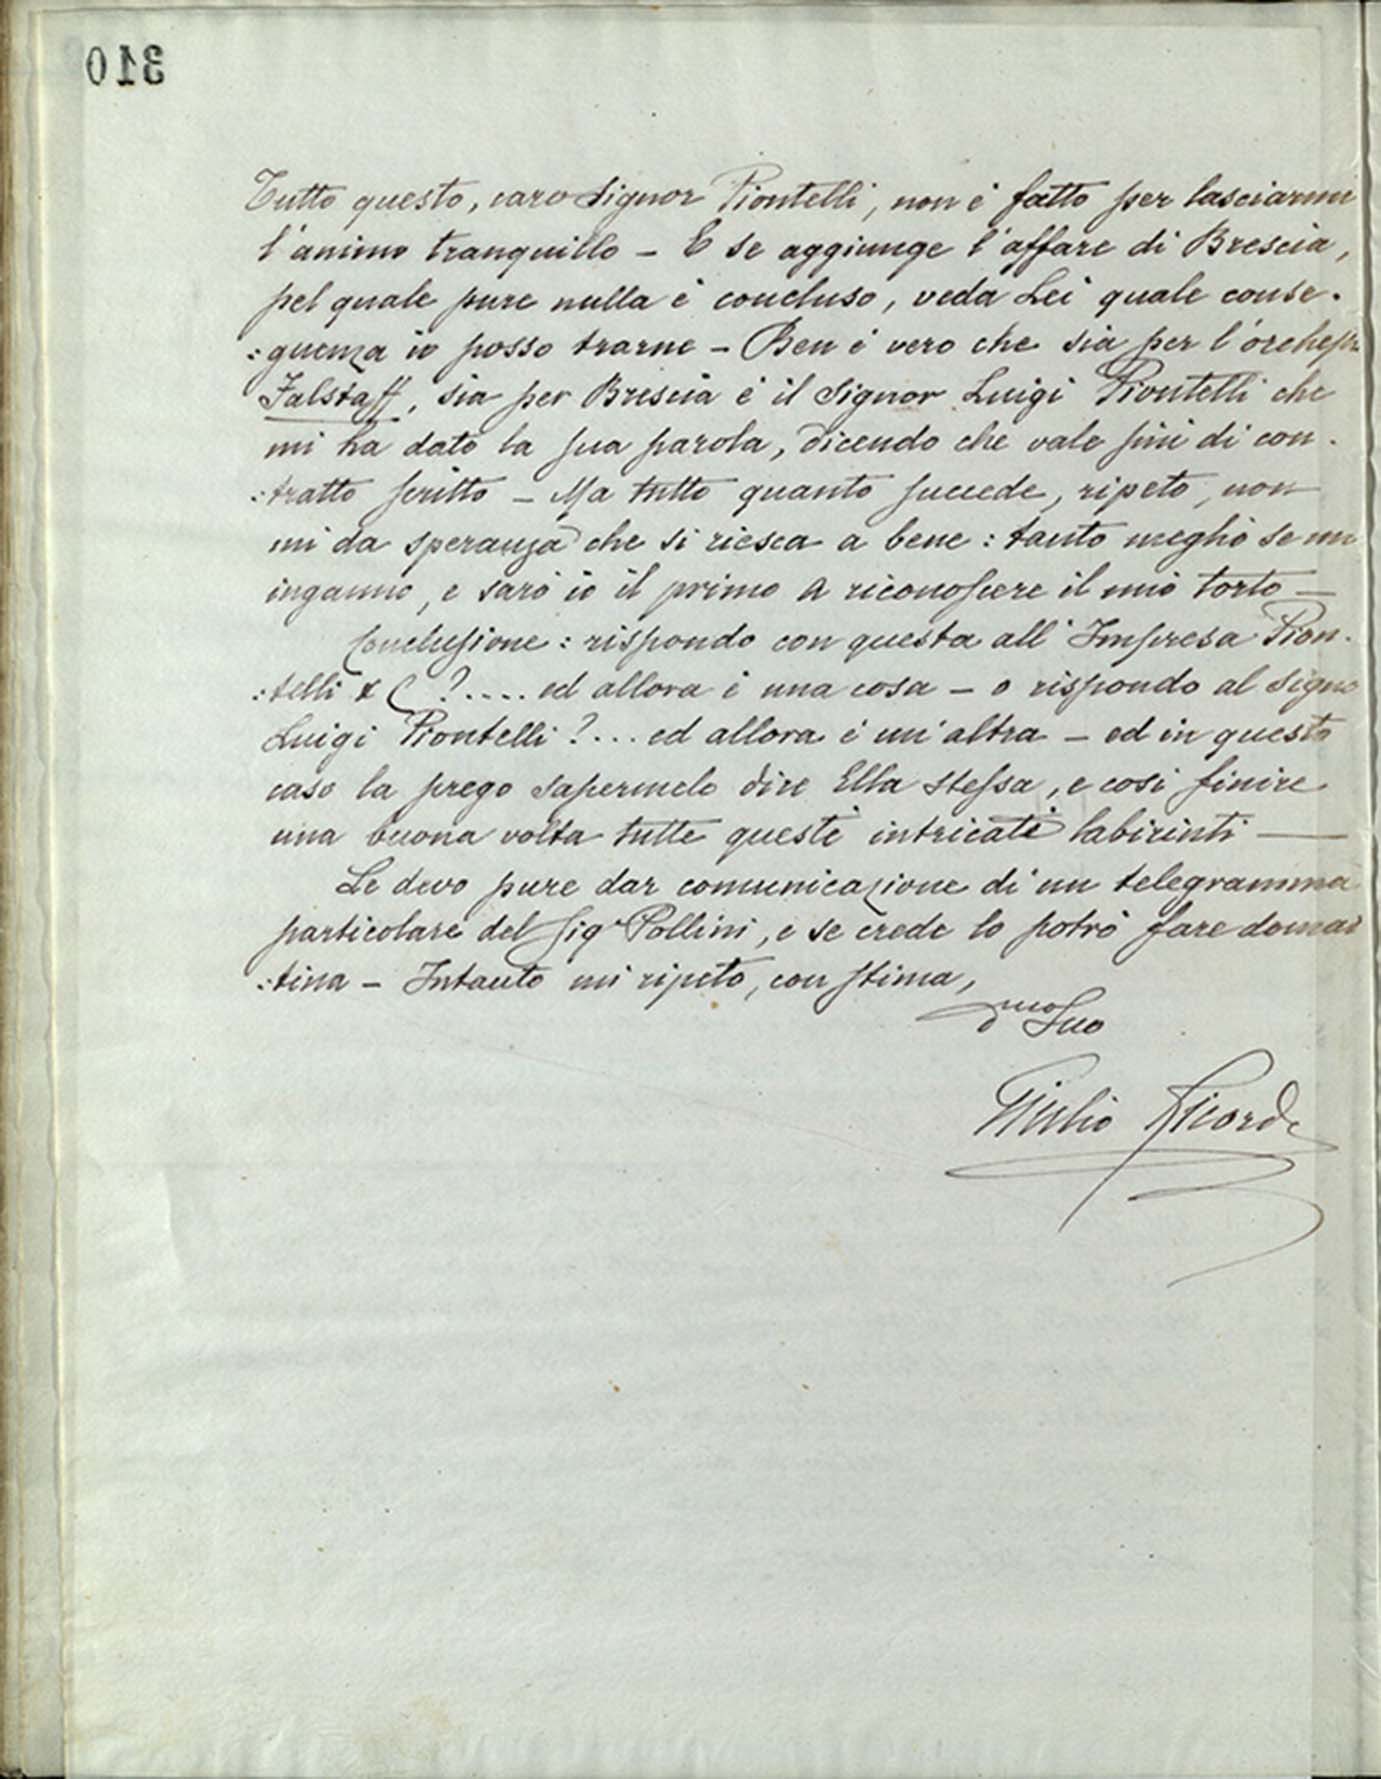 310
Tutto questo, caro Signor Piontelli, non è fatto per lasciarmi
l'animo tranquillo – E se aggiunge l'affare di Brescia,
pel quale pure nulla è concluso, veda Lei quale conse-
:guenza io posso trarne – Ben è vero che sia per l'orchestra
Falstaff, sia per Brescia è il Signor Luigi Piontelli che
mi ha dato la sua parola, dicendo che vale più di con-
:tratto scritto – Ma tutto quanto succede, ripeto, non
mi da speranza che si riesca a bene: tanto meglio se mi
inganno, e sarò io il primo a riconoscere il mio torto –
Conclusione: rispondo con questa all'Impresa Pion-
:telli & C ?.... ed allora è una cosa – o rispondo al Signor
Luigi Piontelli?... ed allora è un'altra – ed in questo
caso la prego sapermelo dire Ella stessa, e così finire
una buona volta tutte questi intricati labirinti –
Le devo pure dar comunicazione di un telegramma
particolare del Sigr Pollini, e se crede lo potrò fare domat
:tina – Intanto mi ripeto, con stima,
dmo Suo
Giulio Ricordi